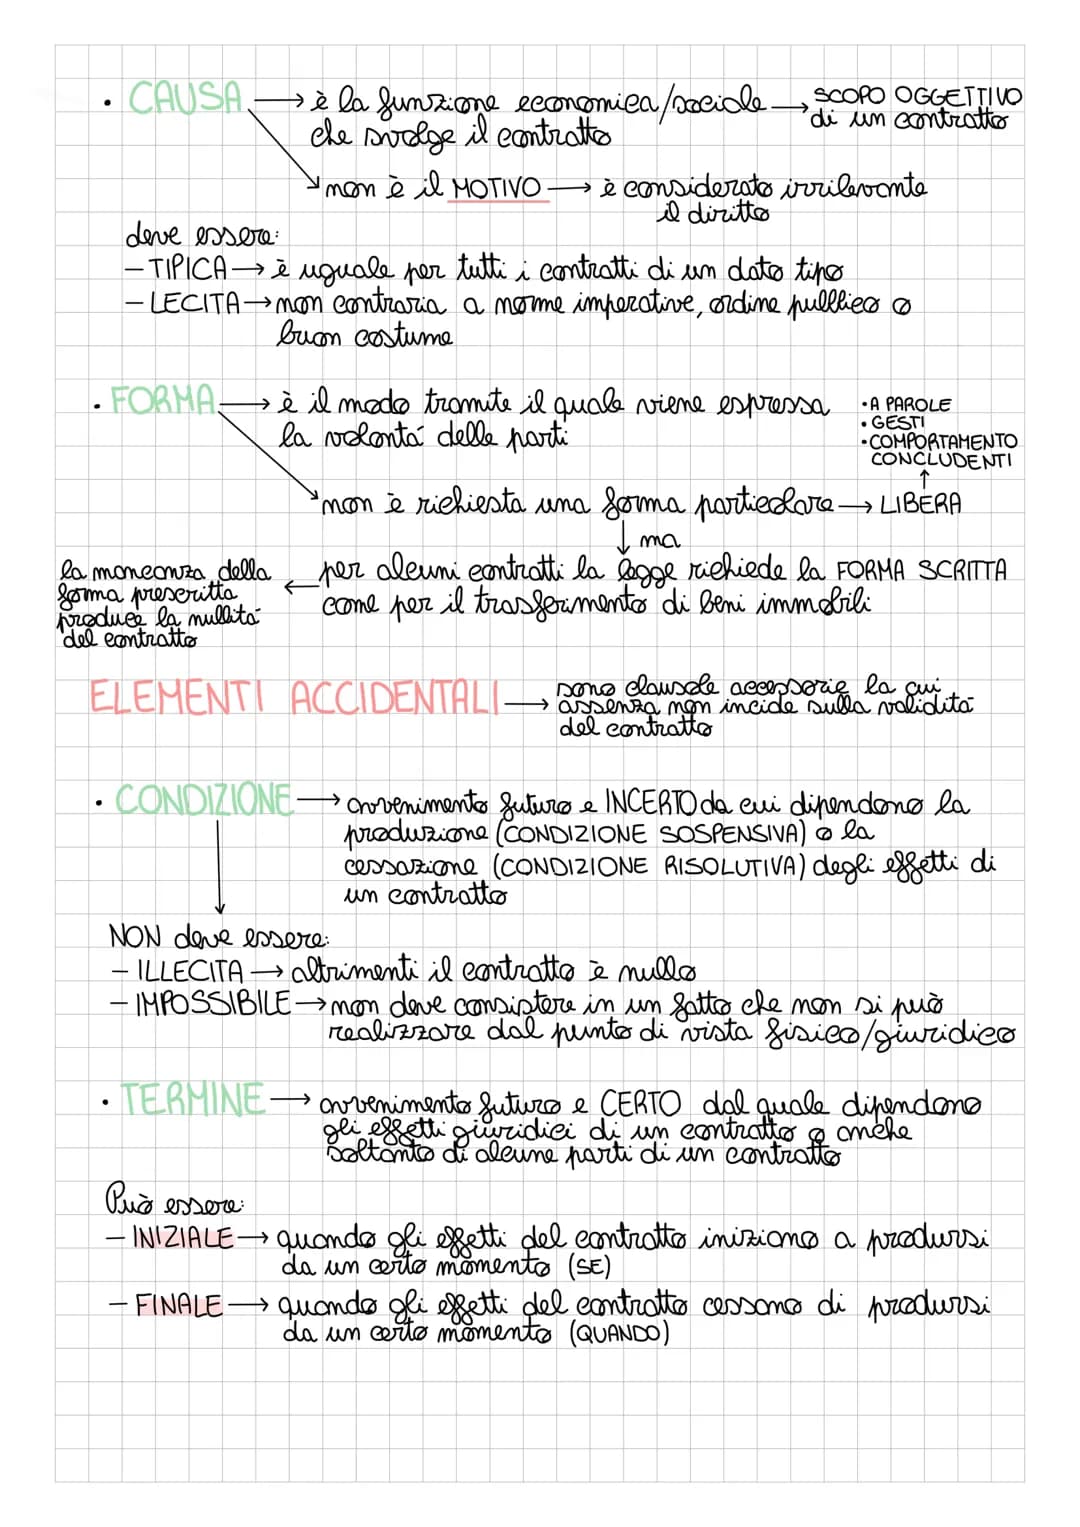 • CAUSA → è la funzione economica/sociale → SCOPO OGGETTIVO
che svolge il contratto di un contratto
non è il MOTIVO → è considerato irrilevante
il diritto
deve essere:
- TIPICA → è uguale per tutti i contratti di un dato tipo
- LECITA → non contraria a norme imperative, ordine pubblico o
buon costume
• FORMA → è il modo tramite il quale viene espressa
la volontá delle parti
• A PAROLE
• GESTI
• COMPORTAMENTO
CONCLUDENTI
↑
non è richiesta una forma particolare → LIBERA
↓ ma
per alcuni contratti la legge richiede la FORMA SCRITTA
come per il trasferimento di beni immobili
la mancanza della
forma prescritta
produce la nullitá
del contratto
ELEMENTI ACCIDENTALI → sono clausole accessorie la cui
assenza non incide sulla validitá
del contratto
• CONDIZIONE → avvenimento futuro e INCERTO da cui dipendono la
produzione (CONDIZIONE SOSPENSIVA) o la
cessazione (CONDIZIONE RISOLUTIVA) degli effetti di
un contratto
NON deve essere:
- ILLECITA → altrimenti il contratto è nullo
- IMPOSSIBILE → non deve consistere in un fatto che non si può
realizzare dal punto di vista fisico/giuridico
• TERMINE → avvenimento futuro e CERTO dal quale dipendono
gli effetti giuridici di un contratto o anche
soltanto di alcune parti di un contratto
Può essere:
- INIZIALE → quando gli effetti del contratto iniziano a prodursi
da un certo momento (SE)
- FINALE → quando gli effetti del contratto cessano di prodursi
da un certo momento (QUANDO)